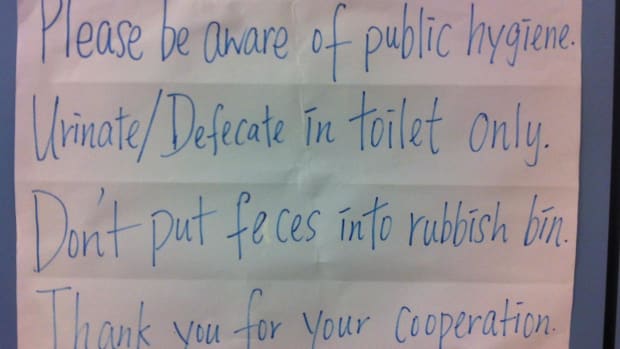 Please be aware of public hygiene.
Urinate/Defecate in toilet only.
Don't put feces into rubbish bin.
Thank you for your cooperation.